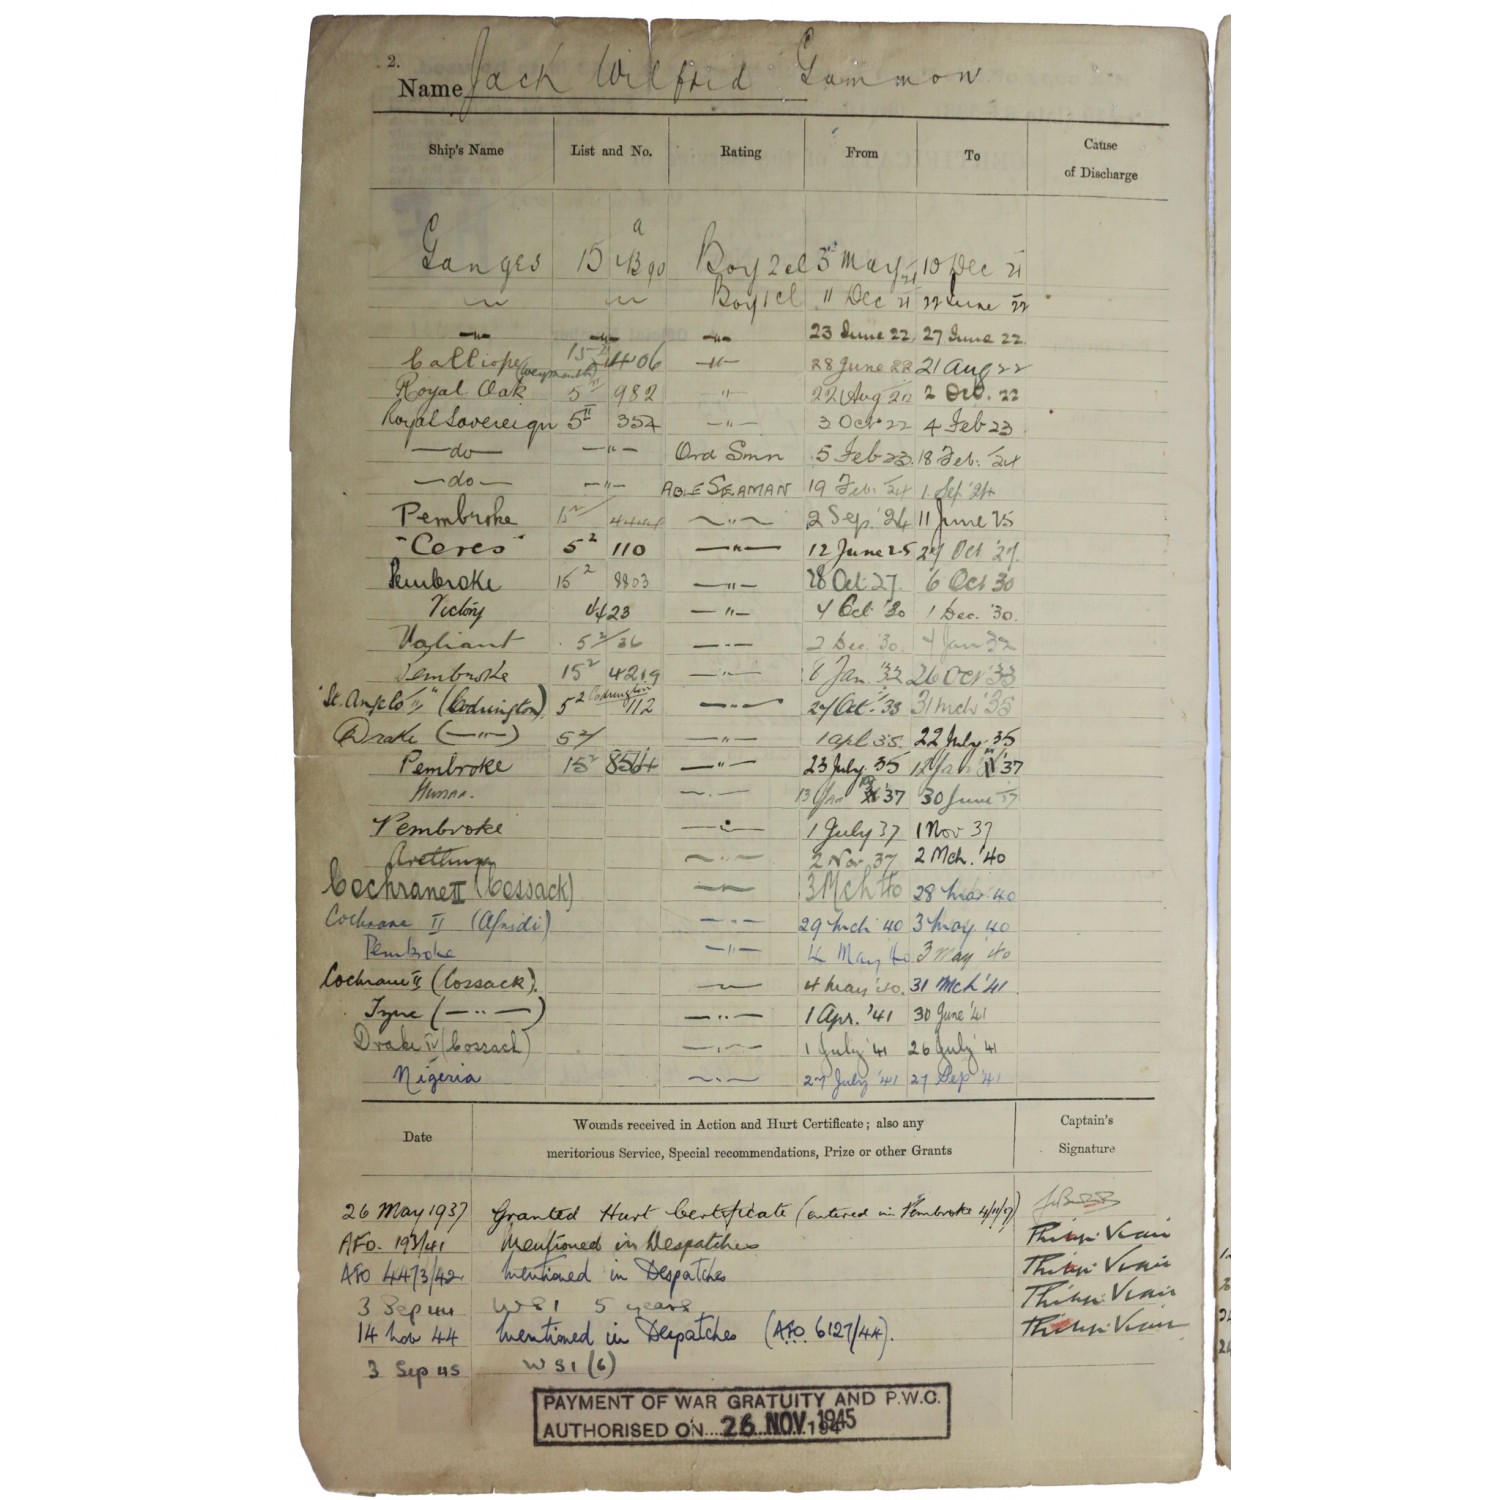 2.
Name Jack Wilfrid Gammon
Ship's Name List and No. Rating From To Cause of Discharge
Ganges 15 a Boy 2 cl 3rd May 21 10 Dec 21
—"— —"— Boy 1 cl 11 Dec 21 22 June 22
—"— —"— —"— 23 June 22 27 June 22
Calliope (Weymouth) 15 406 —"— 28 June 22 21 Aug 22
Royal Oak 5 982 —"— 22 Aug 22 2 Oct. 22
Royal Sovereign 5 II 354 —"— 3 Oct 22 4 Feb 23
—do— —"— Ord Smn 5 Feb 23 18 Feb. '24
—do— —"— ABLE SEAMAN 19 Feb. '24 1 Sep '24
Pembroke 15 2 —"— 2 Sep. '24 11 June 25
"Ceres" 5 2 110 —"— 12 June 25 27 Oct '27
Pembroke 15 2 8803 —"— 28 Oct 27. 6 Oct 30
Victory 423 —"— 7 Oct '30 1 Dec. '30.
Valiant 5 2/36 —"— 2 Dec. '30. 7 Jan 32
Pembroke 15 2 4219 —"— 8 Jan. '32 26 Oct '33
"St. Angelo" (Codrington) 5 2 Codrington 112 —"— 27 Oct. '33 31 Mch '35
Drake (—"—) 5 2/ —"— 1 Apl 35. 22 July 35
Pembroke 15 2 8564 —"— 23 July 35 12 Jan '37
—"— 13 Jan '37 30 June 37
Pembroke —"— 1 July 37 1 Nov 37
Arethusa —"— 2 Nov 37 2 Mch. '40
Cochrane II (Cossack) —"— 3 Mch 40 28 Mar 40
Cochrane II (Afridi) —"— 29 Mch 40 3 May 40
Pembroke —"— 4 May 40 3 May '40
Cochrane II (Cossack). — 4 May '40. 31 Mch '41
Tyne (—"—) —"— 1 Apr. '41 30 June '41
Drake IV (Cossack) —"— 1 July '41 26 July '41
Nigeria —"— 27 July '41 27 Sep '41
Date Wounds received in Action and Hurt Certificate; also any Captain's
meritorious Service, Special recommendations, Prize or other Grants Signature
26 May 1937 Granted Hurt Certificate (entered in Pembroke 4/11/37)
AFO. 193/41 Mentioned in Despatches
AFO 4473/42 Mentioned in Despatches
3 Sep 44 WSI 5 years
14 Nov 44 Mentioned in Despatches (AFO 6127/44).
3 Sep 45 WSI (6)
PAYMENT OF WAR GRATUITY AND P.W.C.
AUTHORISED ON 26 NOV 1945